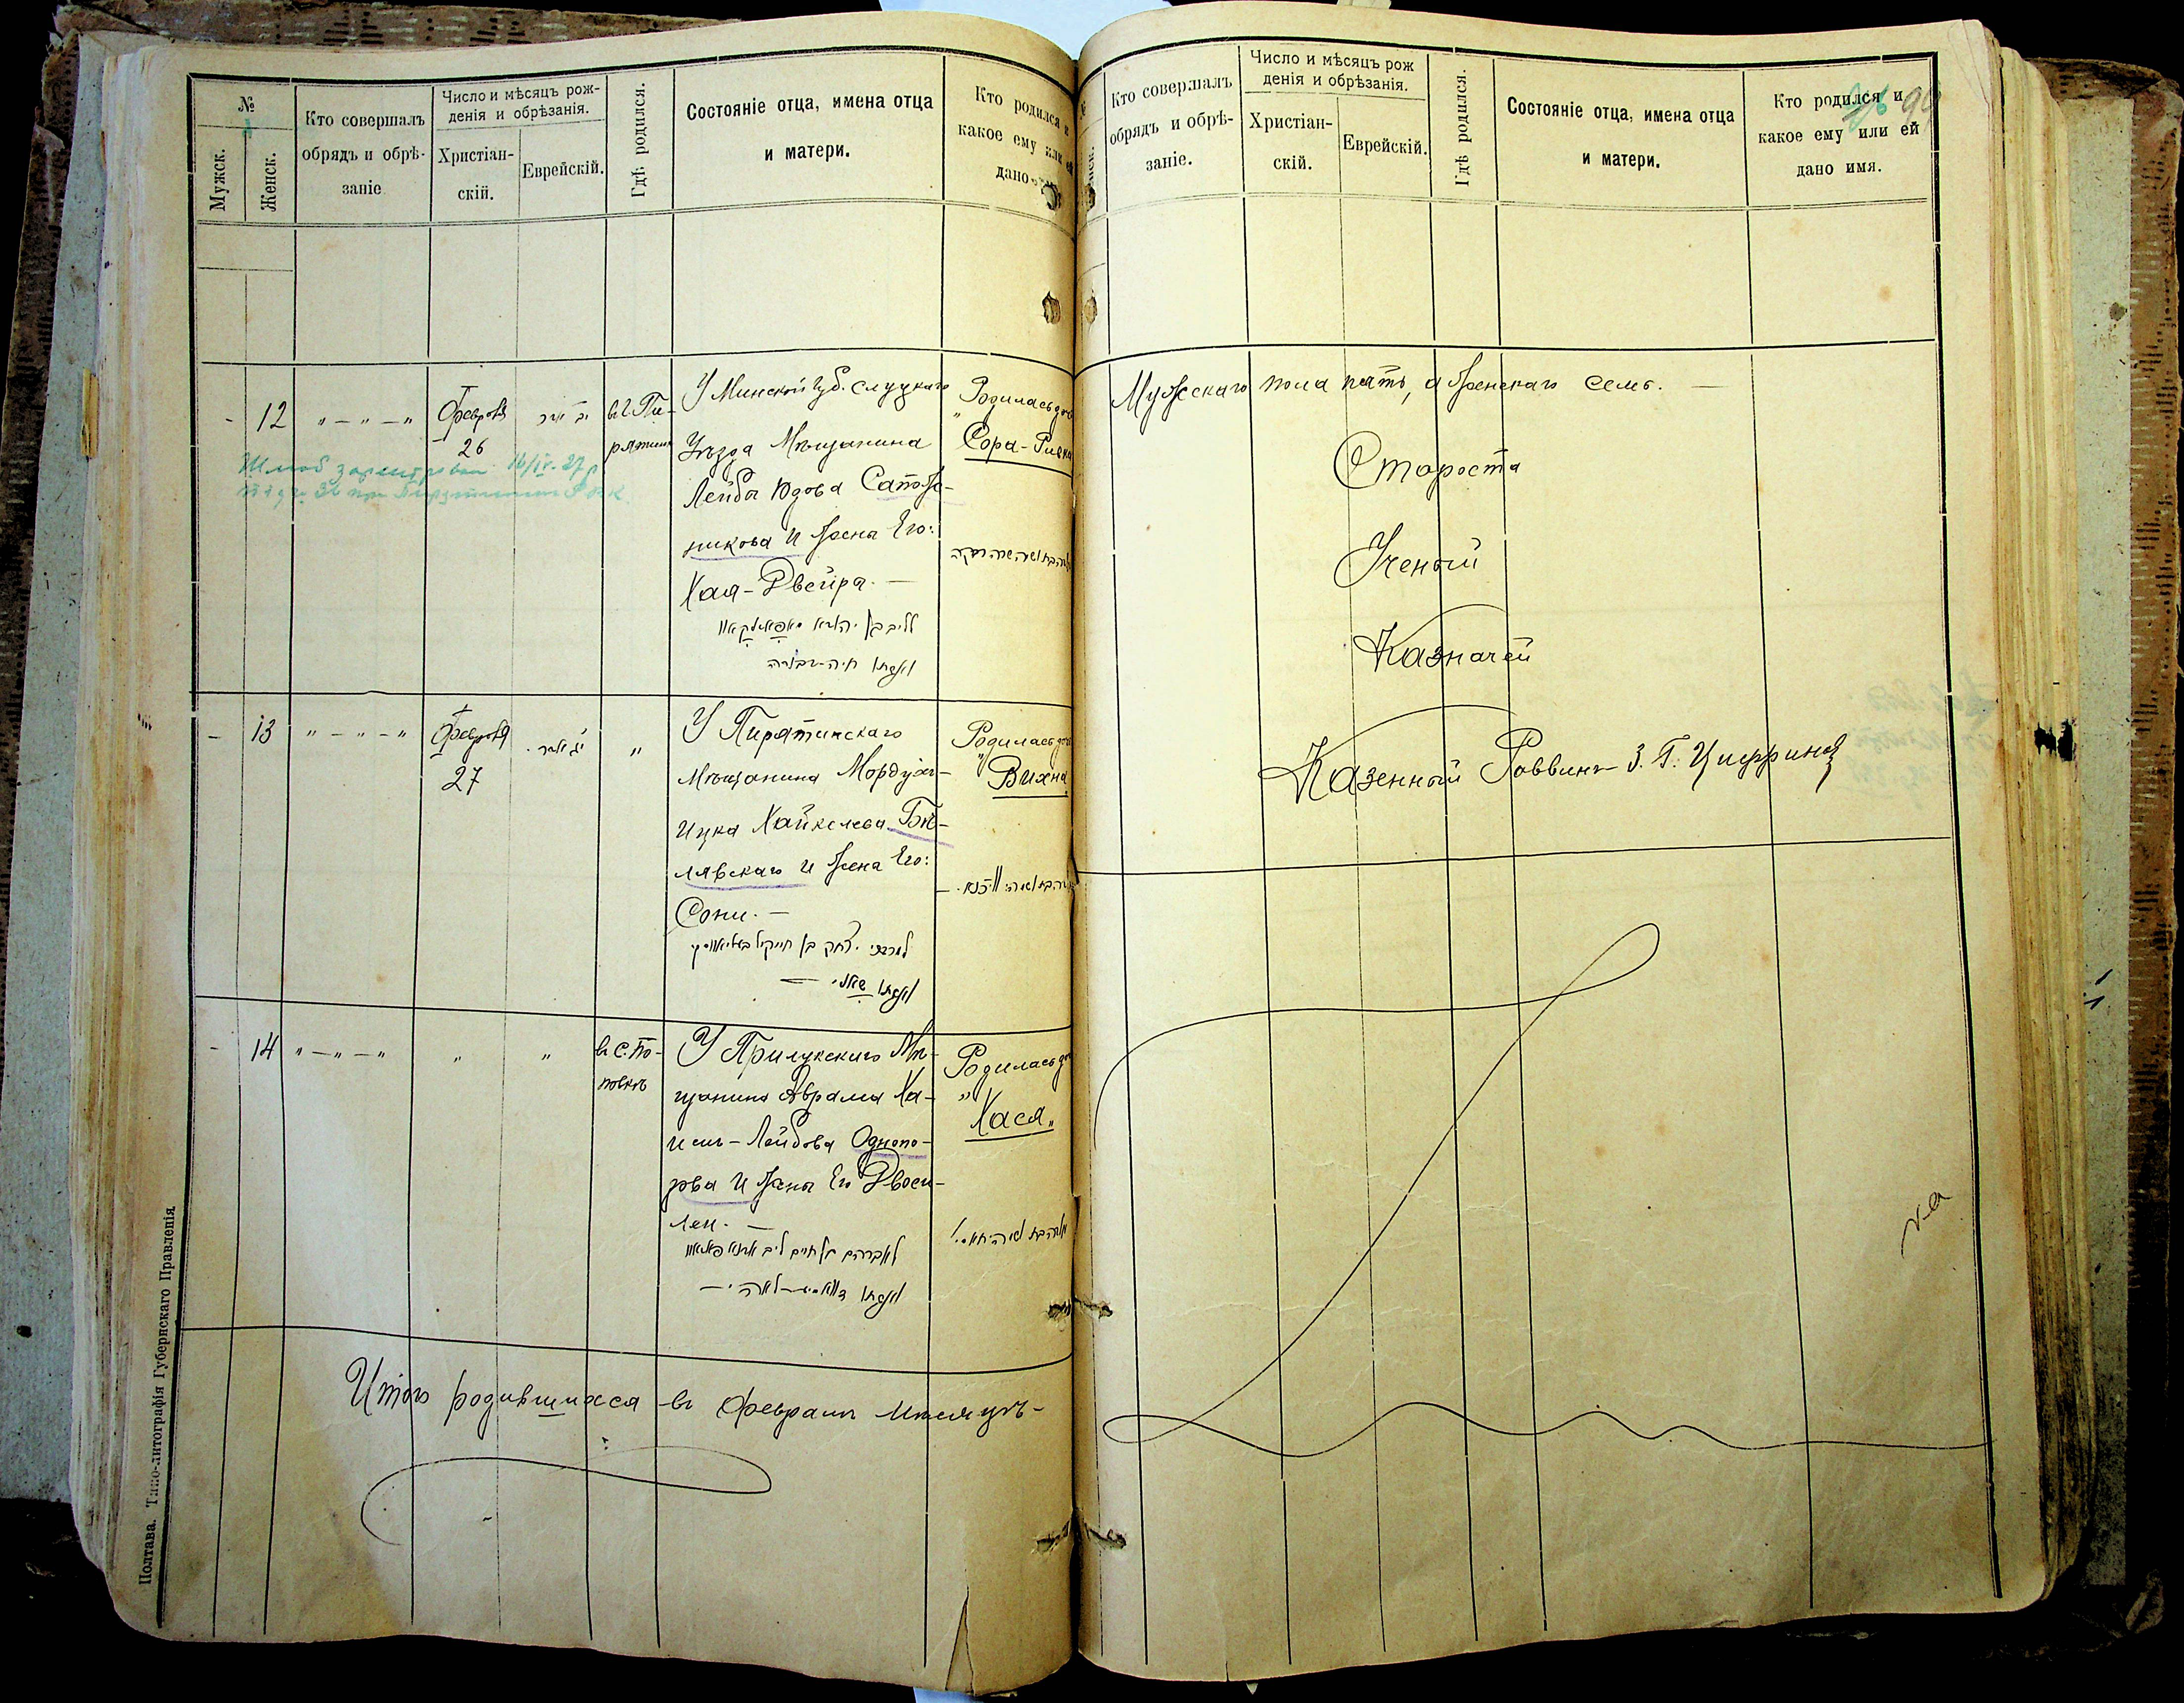 №
Мужск.
Женск.
Кто совершалъ
обрядъ и обрѣ-
заніе
Число и мѣсяцъ рож-
денія и обрѣзанія.
Христіан-
скій.
Еврейскій.
Гдѣ родился.
Состояніе отца, имена отца
и матери.
Кто родился и
какое ему или ей
дано
- 12 „ - „ - „
Февраля
26
въ г. Пи-
рятинѣ
У Минской губ. Слуцкаго
Уѣзда Мѣщанина
Лейба Юдова Сапож-
никова и Жена Его:
Хая-Двейра. —
Родилась дочь
„Сора-Ривка
16/IV-27 р
ליב בן יהודא סאפאזניקאוו
ואשתו חיה-דבורה
- 13 „ - „ - „
Февраля
27
„
У Пирятинскаго
Мѣщанина Мордухъ-
Ицка Хайкелева Бѣ-
лявскаго и Жена Его:
Сони. —
Родилась дочь
„Вихна
ואשתו סאני. —
- 14 „ - „ - „
„
„
въ с. По-
повкѣ
У Прилукскаго Мѣ-
щанина Аврама Ха-
имъ-Лейбова Однопо-
зова и Жена Его Двоси-
Леи. —
Родилась дочь
„Хася„
Итого родившихся въ Февралѣ Мѣсяцѣ-
Полтава. Типо-литографія Губернскаго Правленія.
Кто совершалъ
обрядъ и обрѣ-
заніе.
Число и мѣсяцъ рож
денія и обрѣзанія.
Христіан-
скій.
Еврейскій.
Гдѣ родился.
Состояніе отца, имена отца
и матери.
Кто родился и
какое ему или ей
дано имя.
Мужескаго пола пять, а женскаго семь. —
Староста
Ученый
Казначей
Казенный Раввинъ З. Г. Циффринъ